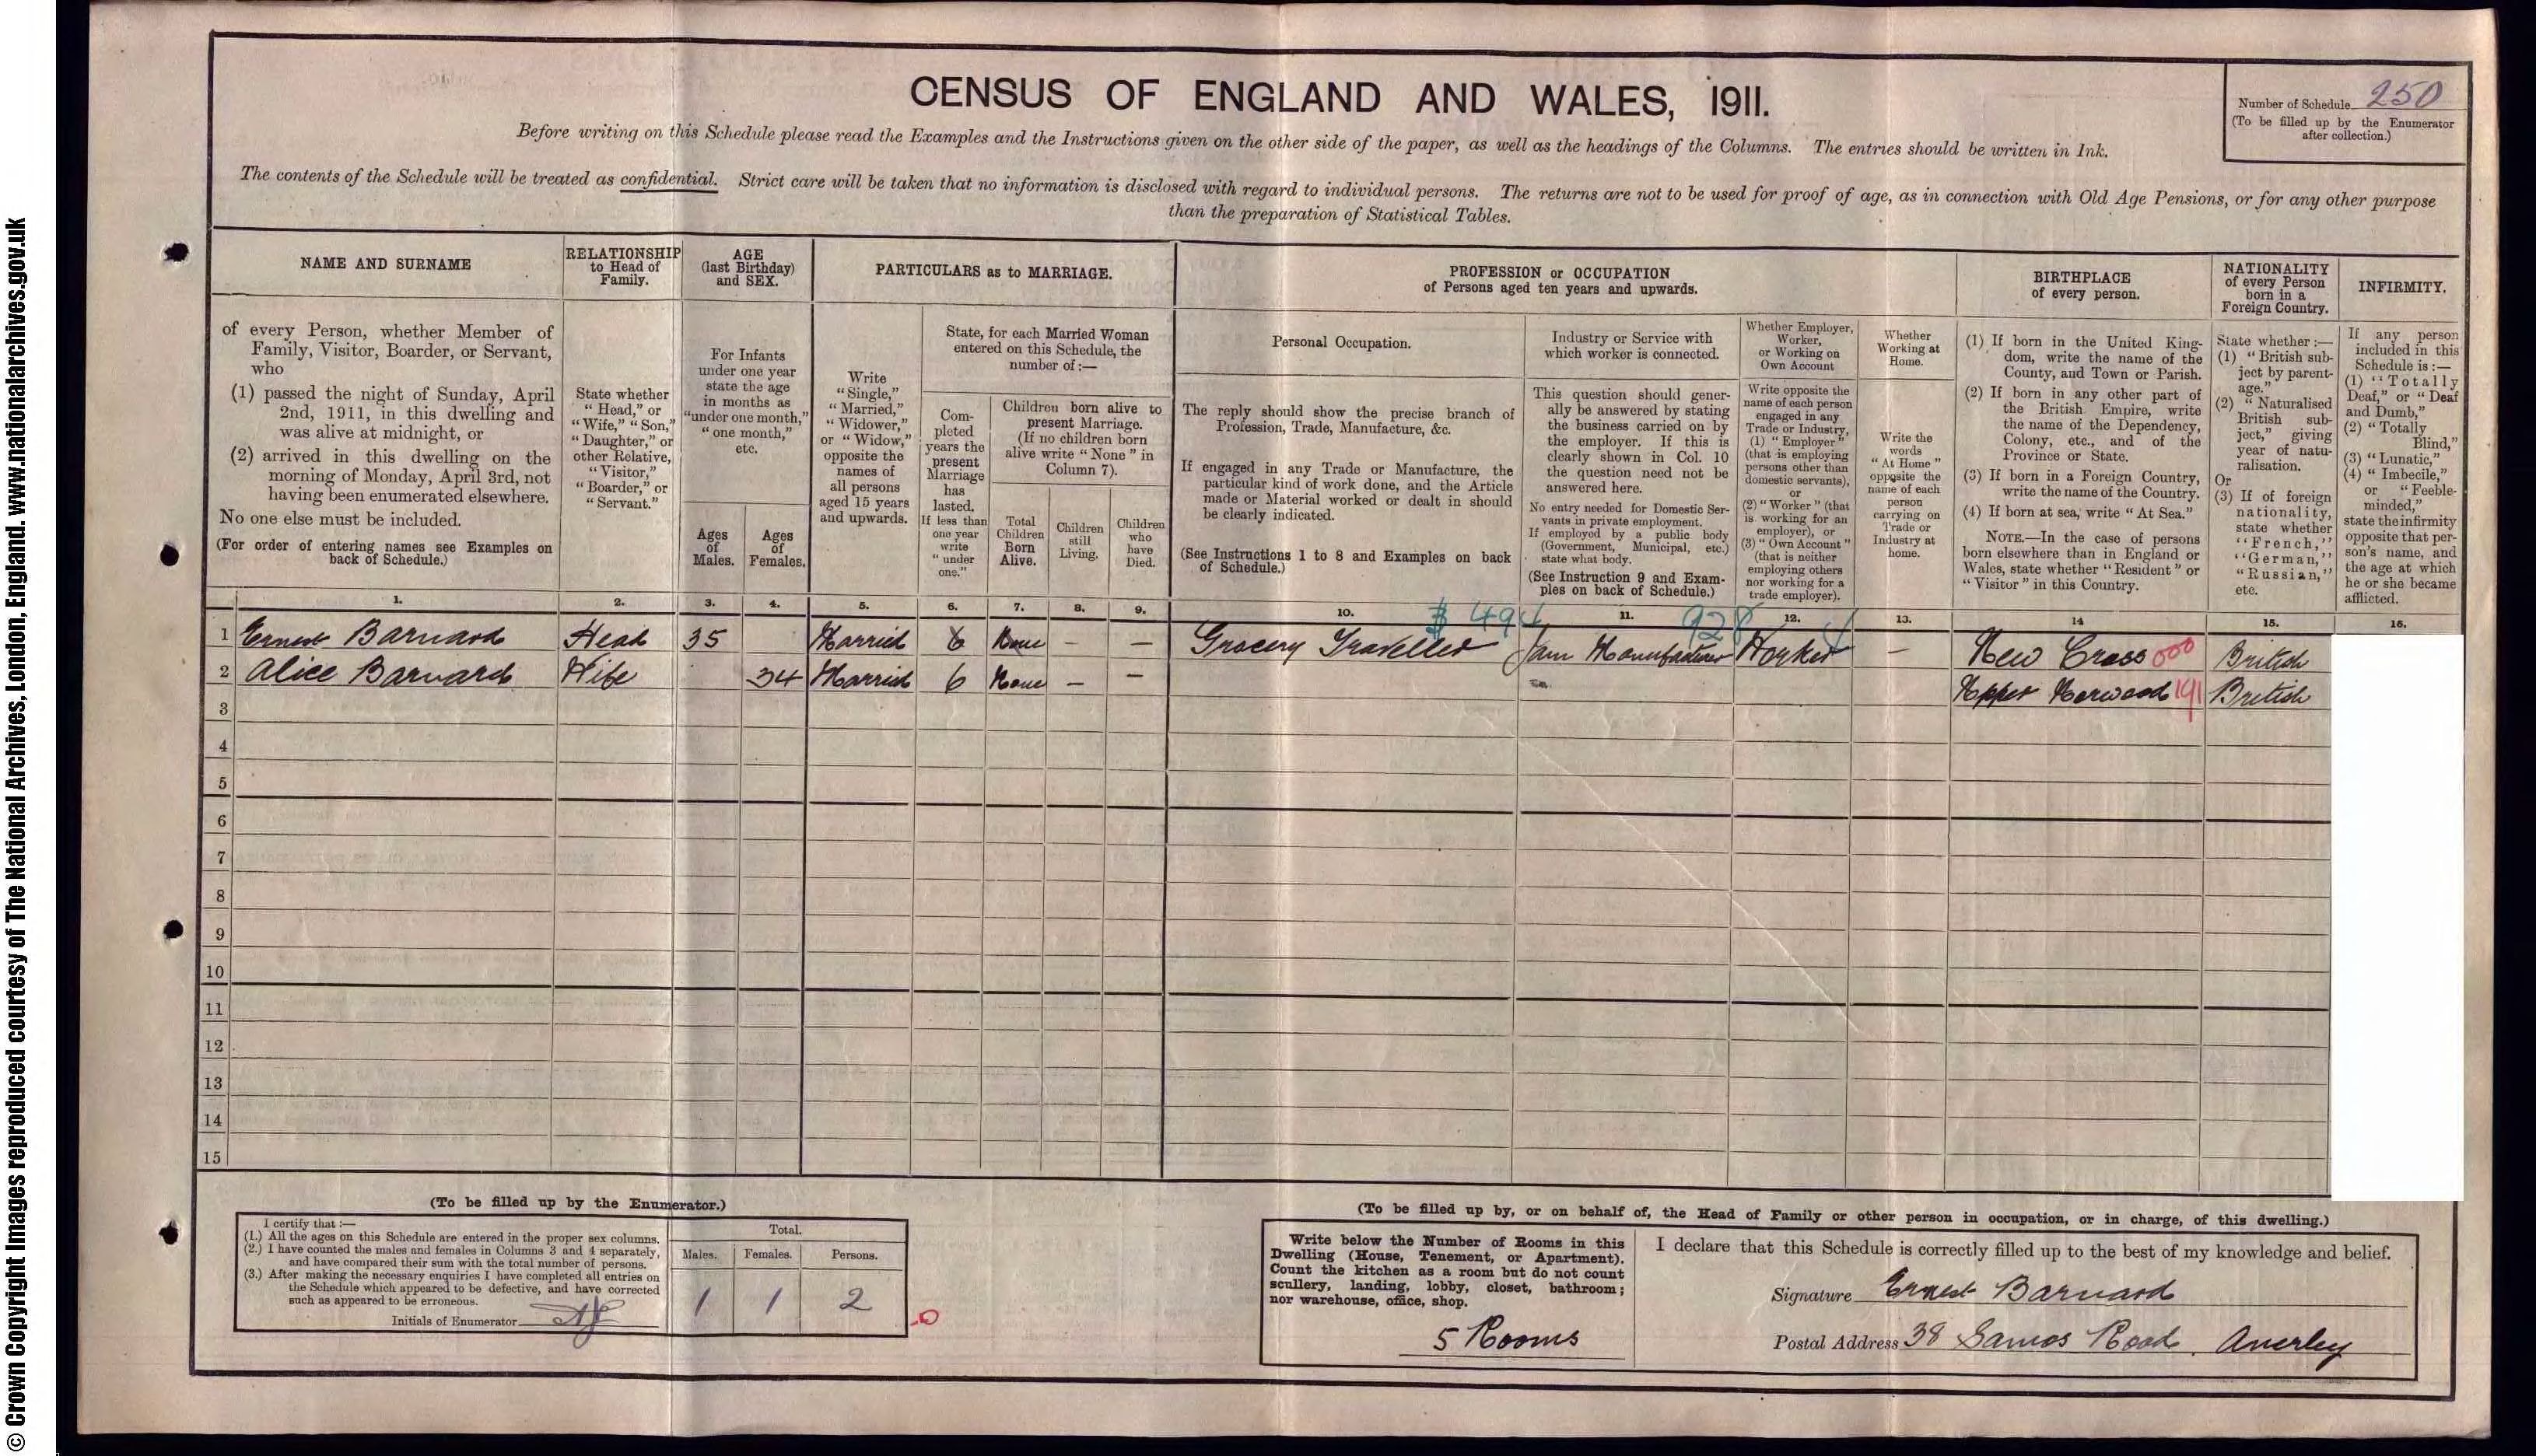 © Crown Copyright Images reproduced courtesy of The National Archives, London, England. www.nationalarchives.gov.uk
CENSUS OF ENGLAND AND WALES, 1911.
Number of Schedule 250
(To be filled up by the Enumerator
after collection.)
Before writing on this Schedule please read the Examples and the Instructions given on the other side of the paper, as well as the headings of the Columns. The entries should be written in Ink.
The contents of the Schedule will be treated as confidential. Strict care will be taken that no information is disclosed with regard to individual persons. The returns are not to be used for proof of age, as in connection with Old Age Pensions, or for any other purpose
than the preparation of Statistical Tables.
NAME AND SURNAME
of every Person, whether Member of
Family, Visitor, Boarder, or Servant,
who
(1) passed the night of Sunday, April
2nd, 1911, in this dwelling and
was alive at midnight, or
(2) arrived in this dwelling on the
morning of Monday, April 3rd, not
having been enumerated elsewhere.
No one else must be included.
(For order of entering names see Examples on
back of Schedule.)
RELATIONSHIP
to Head of
Family.
State whether
"Head," or
"Wife," "Son,"
"Daughter," or
other Relative,
"Visitor,"
"Boarder," or
"Servant."
AGE
(last Birthday)
and SEX.
For Infants
under one year
state the age
in months as
"under one month,"
"one month,"
etc.
Ages
of
Males.
Ages
of
Females.
PARTICULARS as to MARRIAGE.
Write
"Single,"
"Married,"
"Widower,"
or "Widow,"
opposite the
names of
all persons
aged 15 years
and upwards.
State, for each Married Woman
entered on this Schedule, the
number of:—
Com-
pleted
years the
present
Marriage
has
lasted.
If less than
one year
write
"under
one."
Children born alive to
present Marriage.
(If no children born
alive write "None" in
Column 7).
Total
Children
Born
Alive.
Children
still
Living.
Children
who
have
Died.
PROFESSION or OCCUPATION
of Persons aged ten years and upwards.
Personal Occupation.
The reply should show the precise branch of
Profession, Trade, Manufacture, &c.
If engaged in any Trade or Manufacture, the
particular kind of work done, and the Article
made or Material worked or dealt in should
be clearly indicated.
(See Instructions 1 to 8 and Examples on back
of Schedule.)
Industry or Service with
which worker is connected.
This question should gener-
ally be answered by stating
the business carried on by
the employer. If this is
clearly shown in Col. 10
the question need not be
answered here.
No entry needed for Domestic Ser-
vants in private employment.
If employed by a public body
(Government, Municipal, etc.)
state what body.
(See Instruction 9 and Exam-
ples on back of Schedule.)
Whether Employer,
Worker,
or Working on
Own Account
Write opposite the
name of each person
engaged in any
Trade or Industry,
(1) "Employer"
(that is employing
persons other than
domestic servants),
or
(2) "Worker" (that
is working for an
employer), or
(3) "Own Account"
(that is neither
employing others
nor working for a
trade employer).
Whether
Working at
Home.
Write the
words
"At Home"
opposite the
name of each
person
carrying on
Trade or
Industry at
home.
BIRTHPLACE
of every person.
(1) If born in the United King-
dom, write the name of the
County, and Town or Parish.
(2) If born in any other part of
the British Empire, write
the name of the Dependency,
Colony, etc., and of the
Province or State.
(3) If born in a Foreign Country,
write the name of the Country.
(4) If born at sea, write "At Sea."
NOTE.—In the case of persons
born elsewhere than in England or
Wales, state whether "Resident" or
"Visitor" in this Country.
NATIONALITY
of every Person
born in a
Foreign Country.
State whether:—
(1) "British sub-
ject by parent-
age."
(2) "Naturalised
British sub-
ject," giving
year of natu-
ralisation.
Or
(3) If of foreign
nationality,
state whether
"French,"
"German,"
"Russian,"
etc.
INFIRMITY.
If any person
included in this
Schedule is:—
(1) "Totally
Deaf," or "Deaf
and Dumb,"
(2) "Totally
Blind,"
(3) "Lunatic,"
(4) "Imbecile,"
or "Feeble-
minded,"
state the infirmity
opposite that per-
son's name, and
the age at which
he or she became
afflicted.
1. 2. 3. 4. 5. 6. 7. 8. 9. 10. 11. 12. 13. 14 15. 16.
494 928
1 Ernest Barnard Head 35 Married 6 None — — Grocery Traveller Jam Manufacturer Worker — New Cross 000 British
2 Alice Barnard Wife 34 Married 6 None — — Upper Norwood 191 British
3
4
5
6
7
8
9
10
11
12
13
14
15
(To be filled up by the Enumerator.)
I certify that:—
(1.) All the ages on this Schedule are entered in the proper sex columns.
(2.) I have counted the males and females in Columns 3 and 4 separately,
and have compared their sum with the total number of persons.
(3.) After making the necessary enquiries I have completed all entries on
the Schedule which appeared to be defective, and have corrected
such as appeared to be erroneous.
Initials of Enumerator
Total.
Males. Females. Persons.
1 1 2
(To be filled up by, or on behalf of, the Head of Family or other person in occupation, or in charge, of this dwelling.)
Write below the Number of Rooms in this
Dwelling (House, Tenement, or Apartment).
Count the kitchen as a room but do not count
scullery, landing, lobby, closet, bathroom;
nor warehouse, office, shop.
5 Rooms
I declare that this Schedule is correctly filled up to the best of my knowledge and belief.
Signature Ernest Barnard
Postal Address 38 Samos Road, Anerley